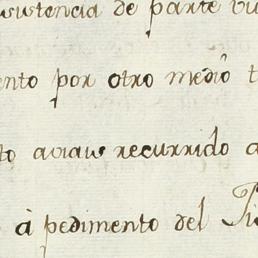 sistencia de parte
ento por otro medio
to aviais recurrido a
à pedimento del